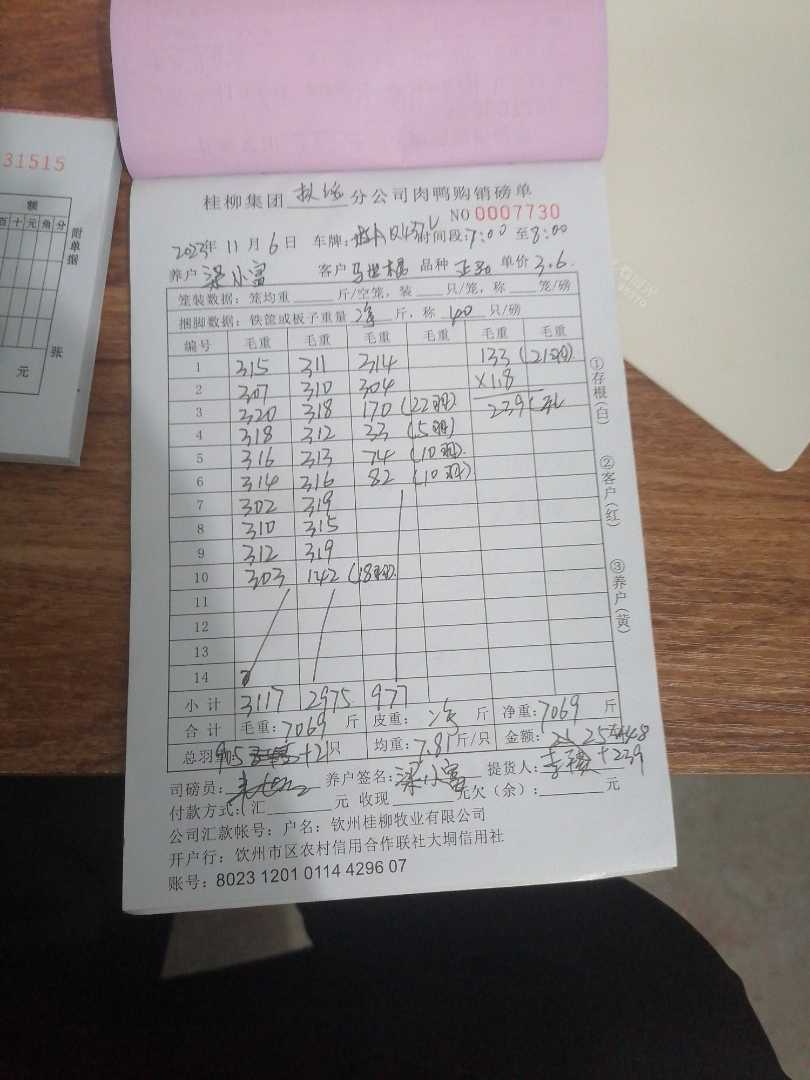 31515
额
百 十 元 角 分
附单据
张
元
桂柳集团 分公司肉鸭购销磅单
NO 0007730
2023年 11月 6日 车牌: 时间段:7:00 至8:00
养户 梁小富 客户 马世 品种 正品 单价 3.6
笼装数据: 笼均重 斤/空笼, 装 只/笼, 称 笼/磅
捆脚数据: 铁筐或板子重量 净 斤, 称 40 只/磅
编号 毛重 毛重 毛重 毛重 毛重 毛重
1 315 311 314 133 (21羽)
2 307 310 304 ×1.8
3 320 318 170 (22羽) 239
4 318 312 33 (5羽)
5 316 313 74 (10羽)
6 314 316 82 (10羽)
7 302 319
8 310 315
9 312 319
10 303 142 (18羽)
11
12
13
14
小计 3117 2975 977
合计 毛重:7069 斤 皮重: 净 斤 净重:7069 斤
总羽 905 +21只 均重:7.81斤/只 金额: 25448
+239
司磅员: 养户签名:梁小富 提货人:
付款方式:汇 元 收现 元欠(余): 元
公司汇款帐号: 户名: 钦州桂柳牧业有限公司
开户行: 钦州市区农村信用合作联社大垌信用社
账号: 8023 1201 0114 4296 07
①存根(白)
②客户(红)
③养户(黄)